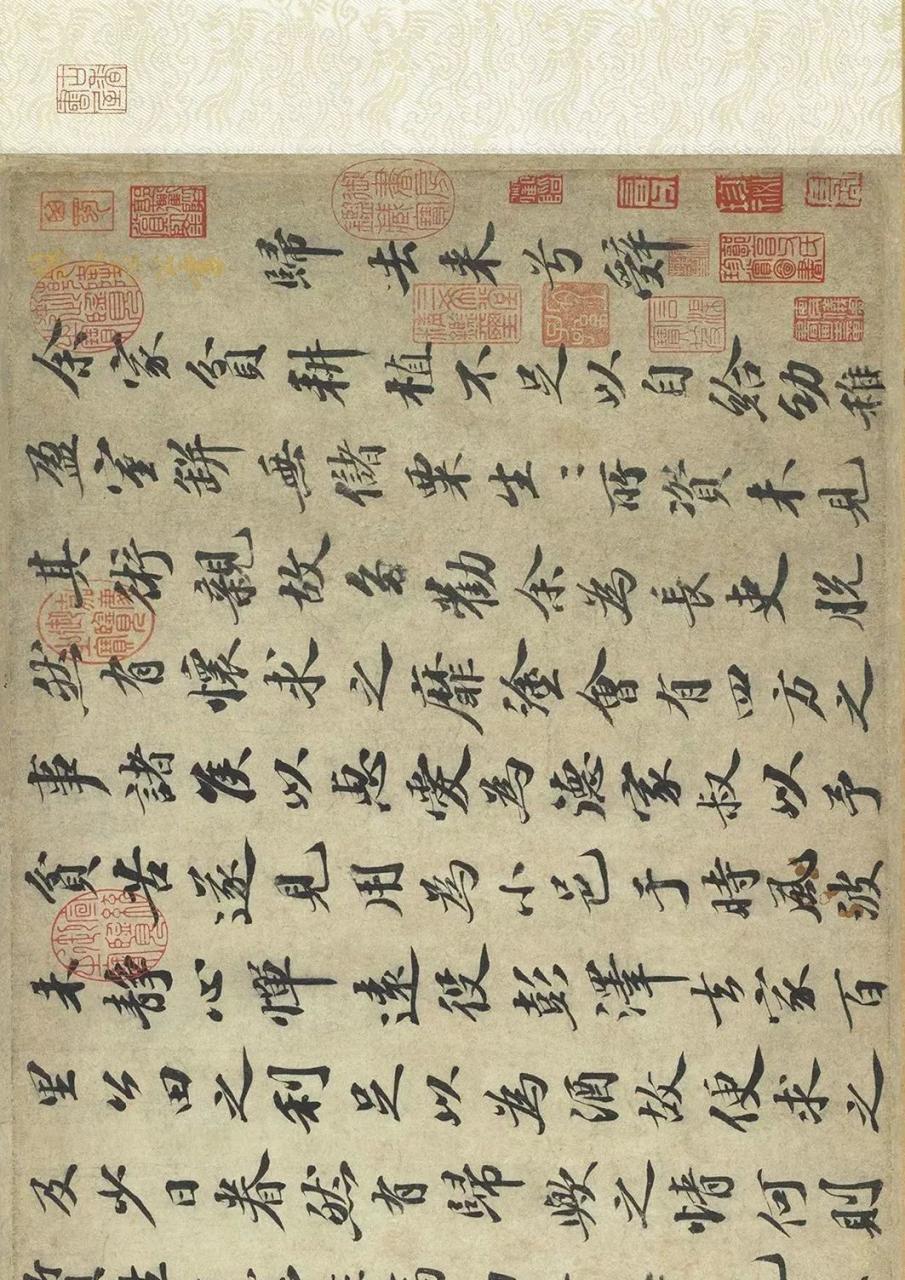 歸去来兮辤
余家貧耕植不足以自給幼稚
盈室缾無儲粟生〻所資未見
其術親故多勸余為長吏脫
然有懷求之靡塗會有四方之
事諸侯以惠愛為德家叔以予
貧苦遂見用為小邑于時風波
未靜心憚遠役彭澤去家百
里公田之利足以為酒故便求之
及少日眷然有歸歟之情何則